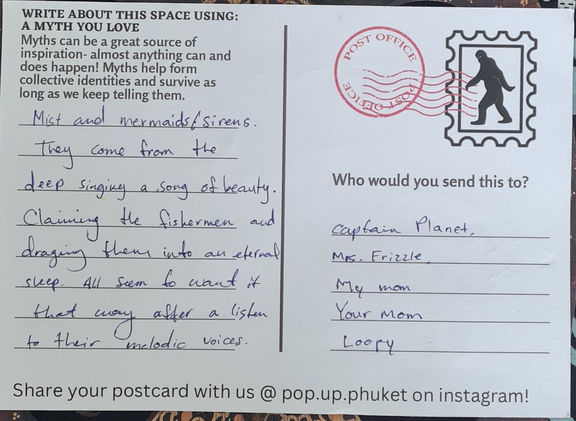 WRITE ABOUT THIS SPACE USING:
A MYTH YOU LOVE
Myths can be a great source of
inspiration- almost anything can and
does happen! Myths help form
collective identities and survive as
long as we keep telling them.
Mist and mermaids/sirens.
They come from the
deep singing a song of beauty.
Claiming the fishermen and
draging them into an eternal
sleep. All seem to want it
that way after a listen
to their melodic voices.
POST OFFICE
POST OFFICE
Who would you send this to?
Captain Planet,
Mrs. Frizzle,
My mom
Your Mom
Loopy
Share your postcard with us @ pop.up.phuket on instagram!